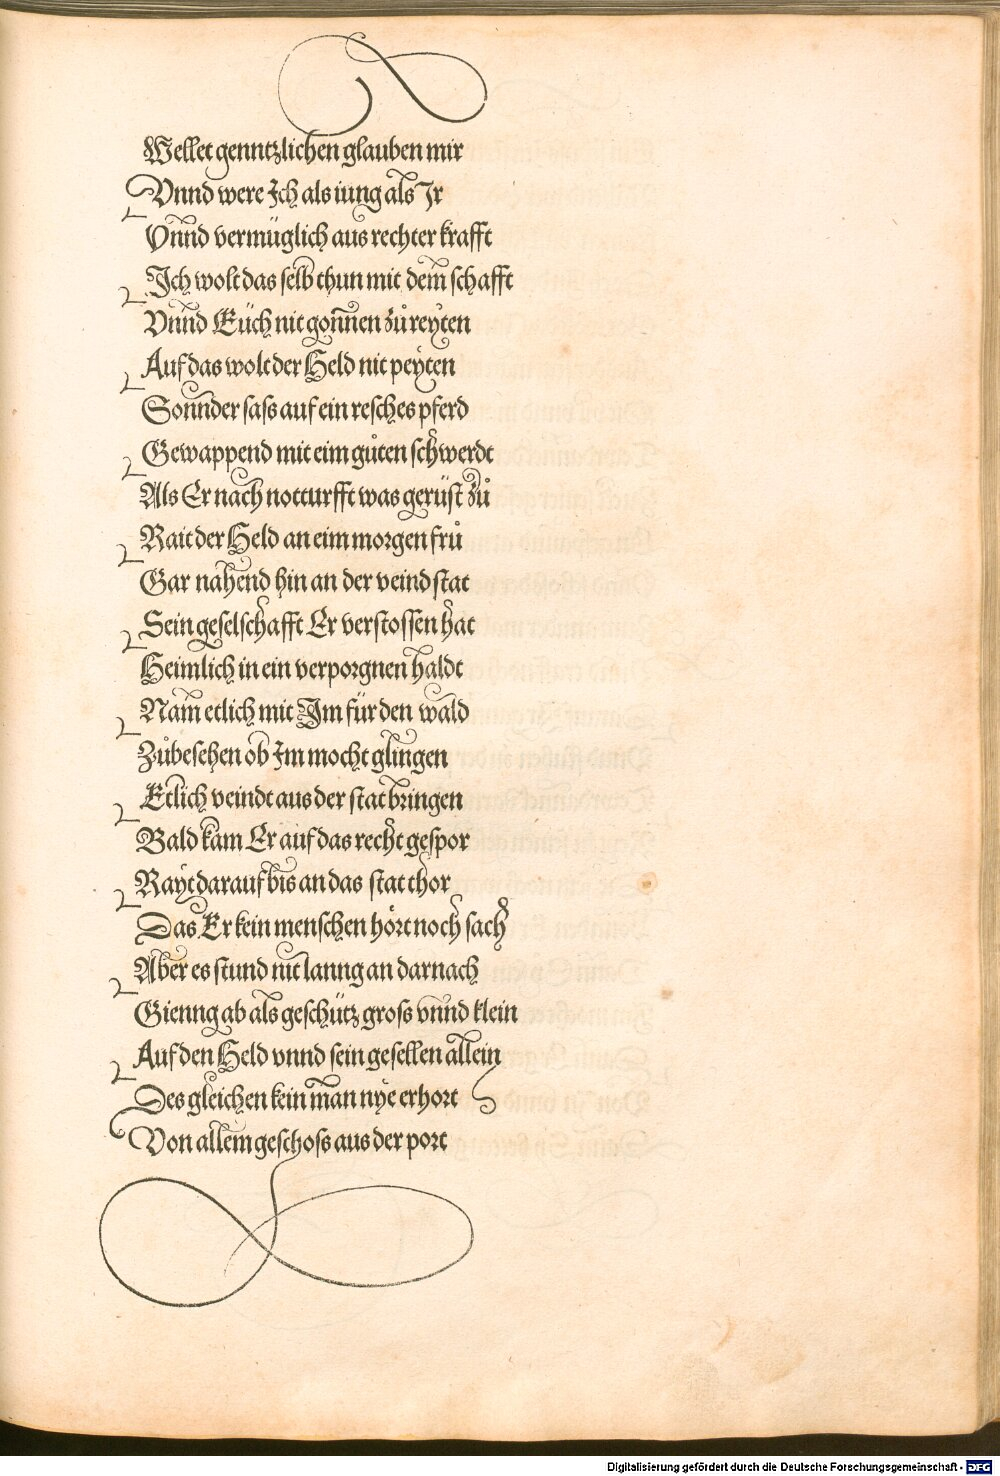 Wellet genntzlichen glauben mir
Vnnd were Ich als iung als Ir
Vnnd vermüglich aus rechter krafft
Ich wolt das selb thun mit dem schafft
Vnnd Eüch nit gonnen zů reyten
Auf das wolt der Held nit peyten
Sonnder sass auf ein resches pferd
Gewappend mit eim gůten schwerdt
Als Er nach notturfft was gerüst zů
Rait der Held an eim morgen frů
Gar nahend hin an der veind stat
Sein geselschafft Er verstossen hat
Heimlich in ein verporgnen haldt
Nam etlich mit Im für den wald
Zůbesehen ob Im mocht glingen
Etlich veindt aus der stat bringen
Bald kam Er auf das recht gespor
Rayt darauf bis an das stat thor
Das Er kein menschen hört noch sach
Aber es stund nit lanng an darnach
Gienng ab als geschütz gross vnnd klein
Auf den Held vnnd sein gesellen allein
Des gleichen kein man nye erhort
Von allem geschoss aus der port
Digitalisierung gefördert durch die Deutsche Forschungsgemeinschaft - DFG